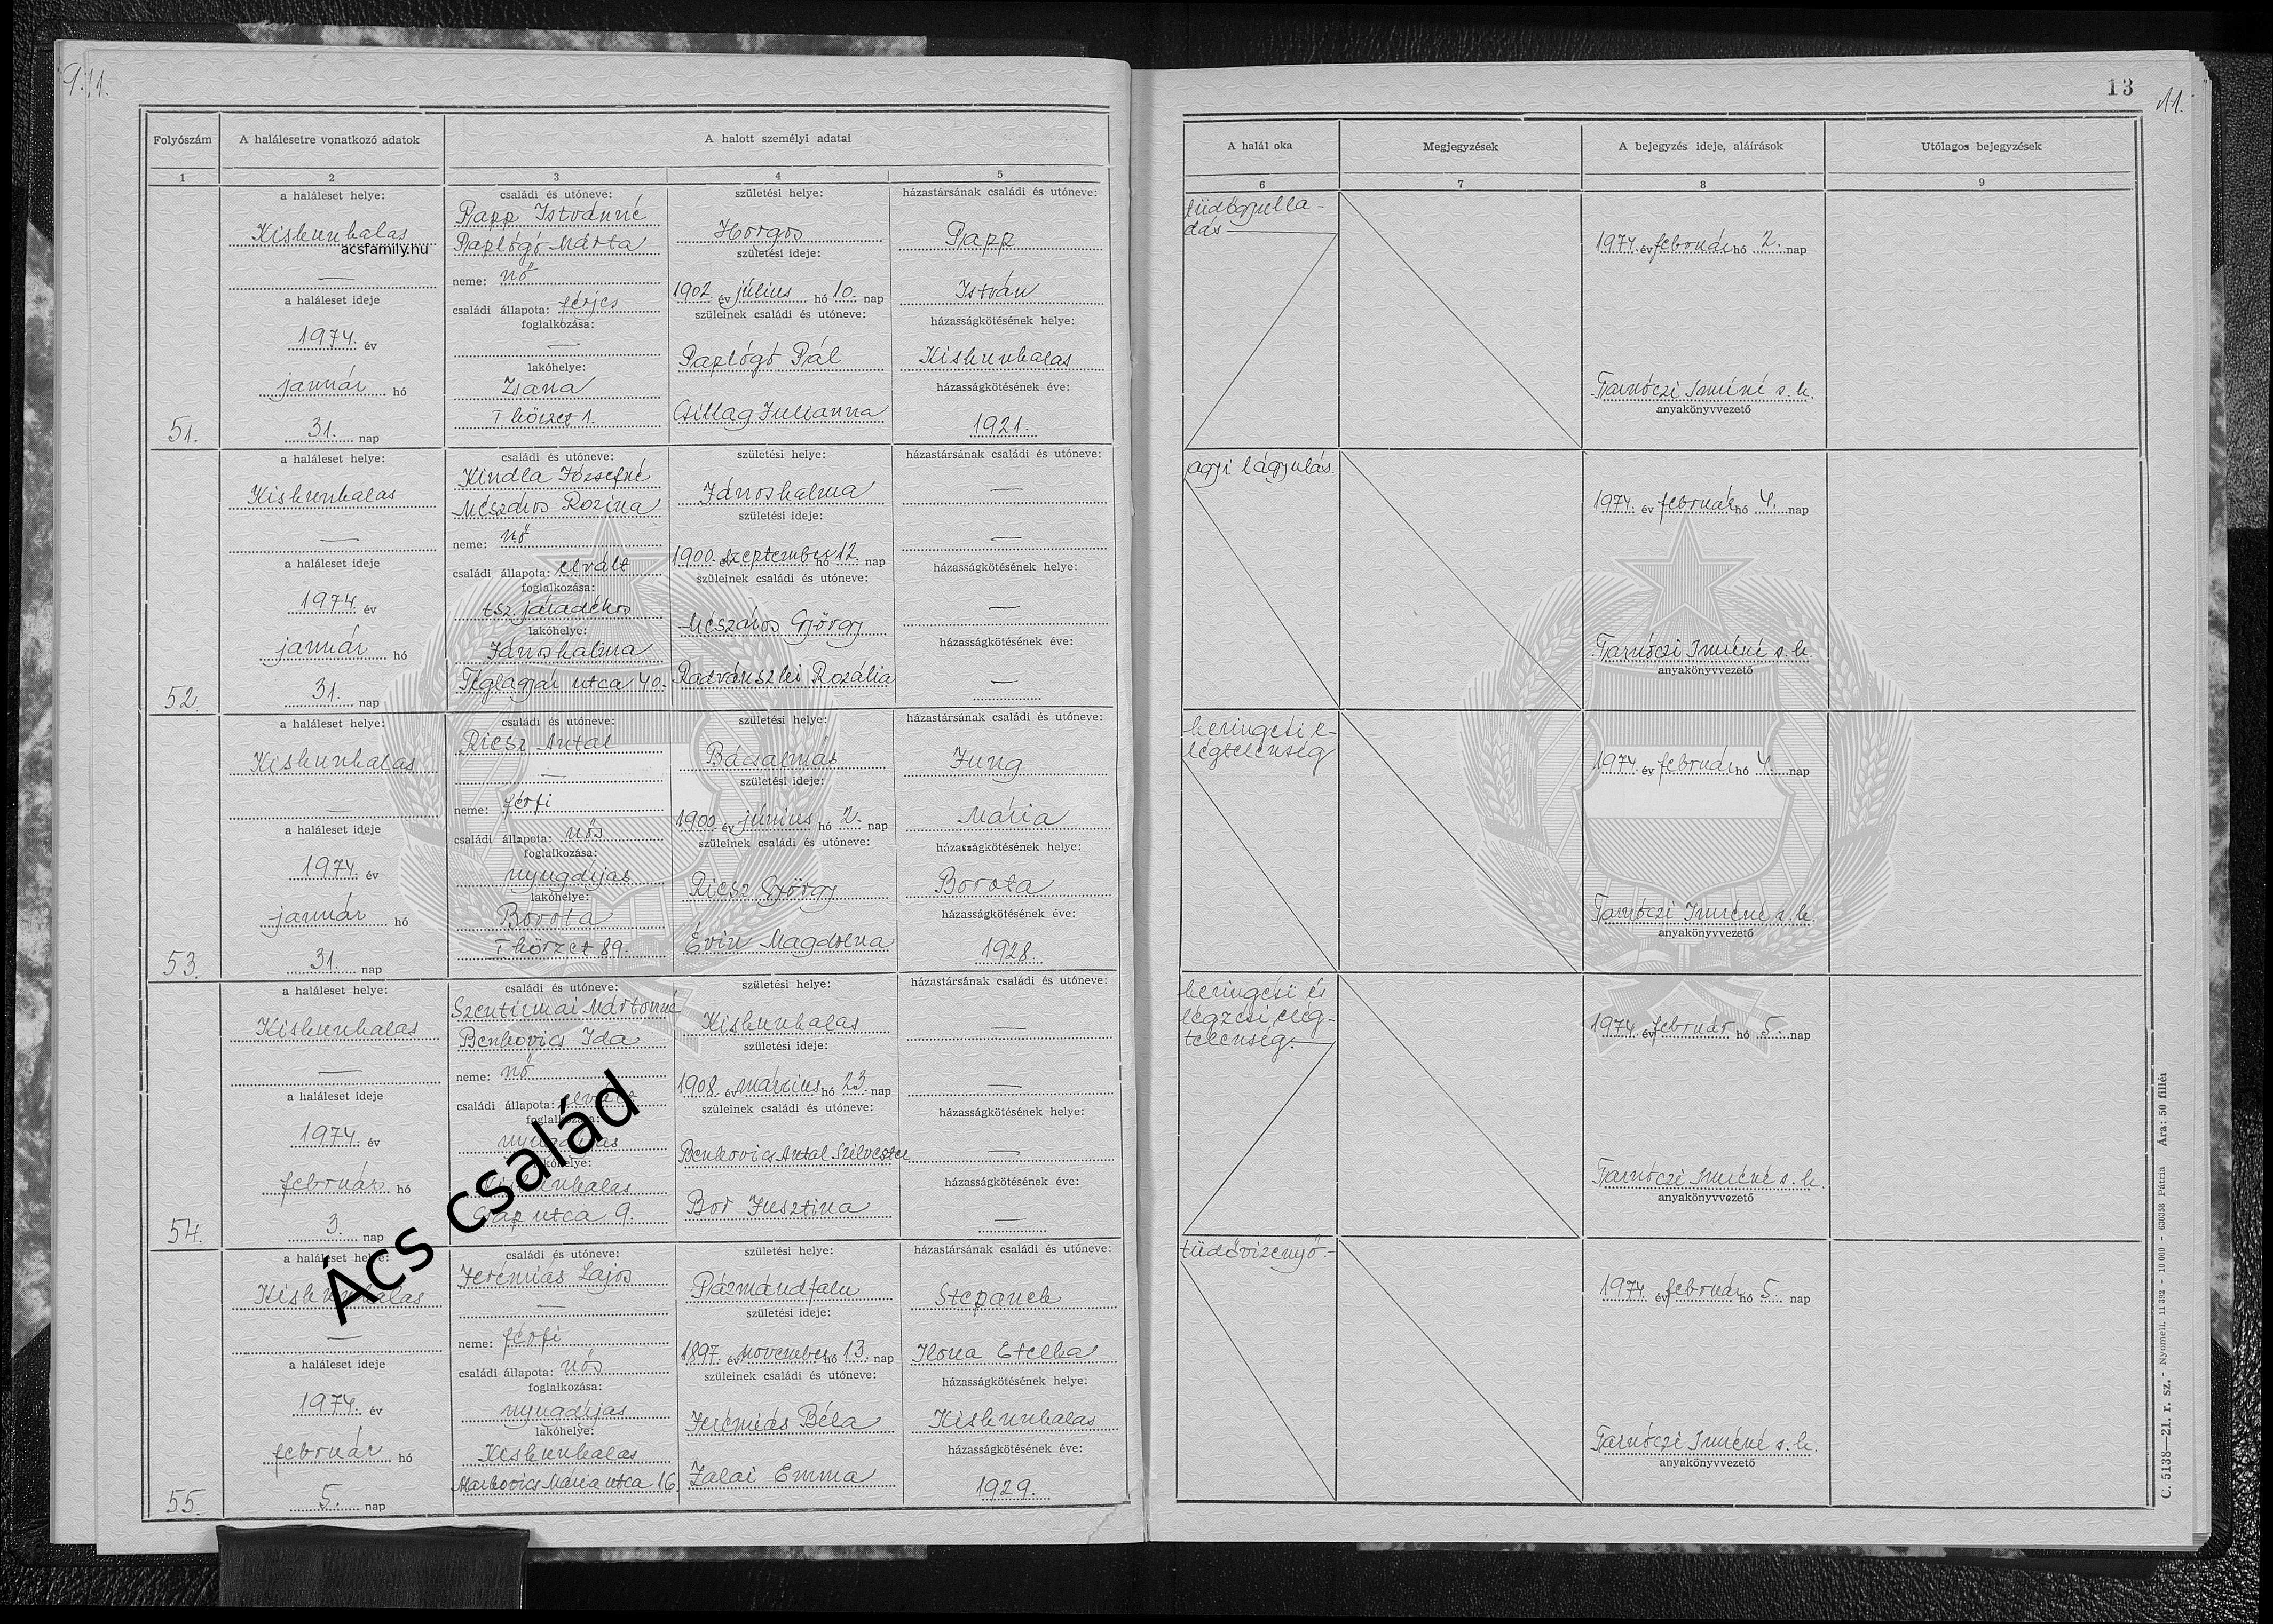 9.11.
13
11.
Folyószám
A halálesetre vonatkozó adatok
A halott személyi adatai
A halál oka
Megjegyzések
A bejegyzés ideje, aláírások
Utólagos bejegyzések
1
2
3
4
5
6
7
8
9
51.
a haláleset helye:
Kiskunhalas
acsfamily.hu
—
a haláleset ideje
1974. év
január hó
31. nap
családi és utóneve:
Papp Istvánné
Paplógó Márta
neme: nő
családi állapota: férjes
foglalkozása:
—
lakóhelye:
Zsana
I. körzet 1.
születési helye:
Horgos
születési ideje:
1902. év július hó 10. nap
szüleinek családi és utóneve:
Paplógó Pál
Csillag Julianna
házastársának családi és utóneve:
Papp
István
házasságkötésének helye:
Kiskunhalas
házasságkötésének éve:
1921.
tüdőgyulla-
dás
1974. év február hó 2. nap
Tarnóczi Imréné s.k.
anyakönyvvezető
52.
a haláleset helye:
Kiskunhalas
—
a haláleset ideje
1974. év
január hó
31. nap
családi és utóneve:
Kindla Józsefné
Mészáros Rozina
neme: nő
családi állapota: elvált
foglalkozása:
tsz. járadékos
lakóhelye:
Jánoshalma
Téglagyár utca 40.
születési helye:
Jánoshalma
születési ideje:
1900. év szeptember hó 12. nap
szüleinek családi és utóneve:
Mészáros György
Radvánszki Rozália
házastársának családi és utóneve:
—
—
házasságkötésének helye:
—
házasságkötésének éve:
—
agyi lágyulás.
1974. év február hó 4. nap
Tarnóczi Imréné s.k.
anyakönyvvezető
53.
a haláleset helye:
Kiskunhalas
—
a haláleset ideje
1974. év
január hó
31. nap
családi és utóneve:
Ricsz Antal
—
neme: férfi
családi állapota: nős
foglalkozása:
nyugdíjas
lakóhelye:
Borota
I. körzet 89.
születési helye:
Bácsalmás
születési ideje:
1900. év június hó 2. nap
szüleinek családi és utóneve:
Ricsz György
Évin Magdolna
házastársának családi és utóneve:
Jung
Mária
házasságkötésének helye:
Borota
házasságkötésének éve:
1928.
keringési e-
légtelenség
1974. év február hó 4. nap
Tarnóczi Imréné s.k.
anyakönyvvezető
54.
a haláleset helye:
Kiskunhalas
—
a haláleset ideje
1974. év
február hó
3. nap
családi és utóneve:
Szentirmai Mártonné
Benkovics Ida
neme: nő
családi állapota: elvált
foglalkozása:
nyugdíjas
lakóhelye:
Kiskunhalas
utca 9.
születési helye:
Kiskunhalas
születési ideje:
1908. év március hó 23. nap
szüleinek családi és utóneve:
Benkovics Antal Szilveszter
Bor Jusztina
házastársának családi és utóneve:
—
—
házasságkötésének helye:
—
házasságkötésének éve:
—
keringési és
légzési elég-
telenség.
1974. év február hó 5. nap
Tarnóczi Imréné s.k.
anyakönyvvezető
Ács család
55.
a haláleset helye:
Kiskunhalas
—
a haláleset ideje
1974. év
február hó
5. nap
családi és utóneve:
Jeremiás Lajos
—
neme: férfi
családi állapota: nős
foglalkozása:
nyugdíjas
lakóhelye:
Kiskunhalas
Markovics Mária utca 16.
születési helye:
Pázmándfalu
születési ideje:
1897. év november hó 13. nap
szüleinek családi és utóneve:
Jeremiás Béla
Zalai Emma
házastársának családi és utóneve:
Stepanek
Ilona Etelka
házasságkötésének helye:
Kiskunhalas
házasságkötésének éve:
1929.
tüdővizenyő.
1974. év február hó 5. nap
Tarnóczi Imréné s.k.
anyakönyvvezető
C. 5138—21. r. sz. - Nyomell. 11 392 - 10 000 - 630358 Pátria Ára: 50 fillér